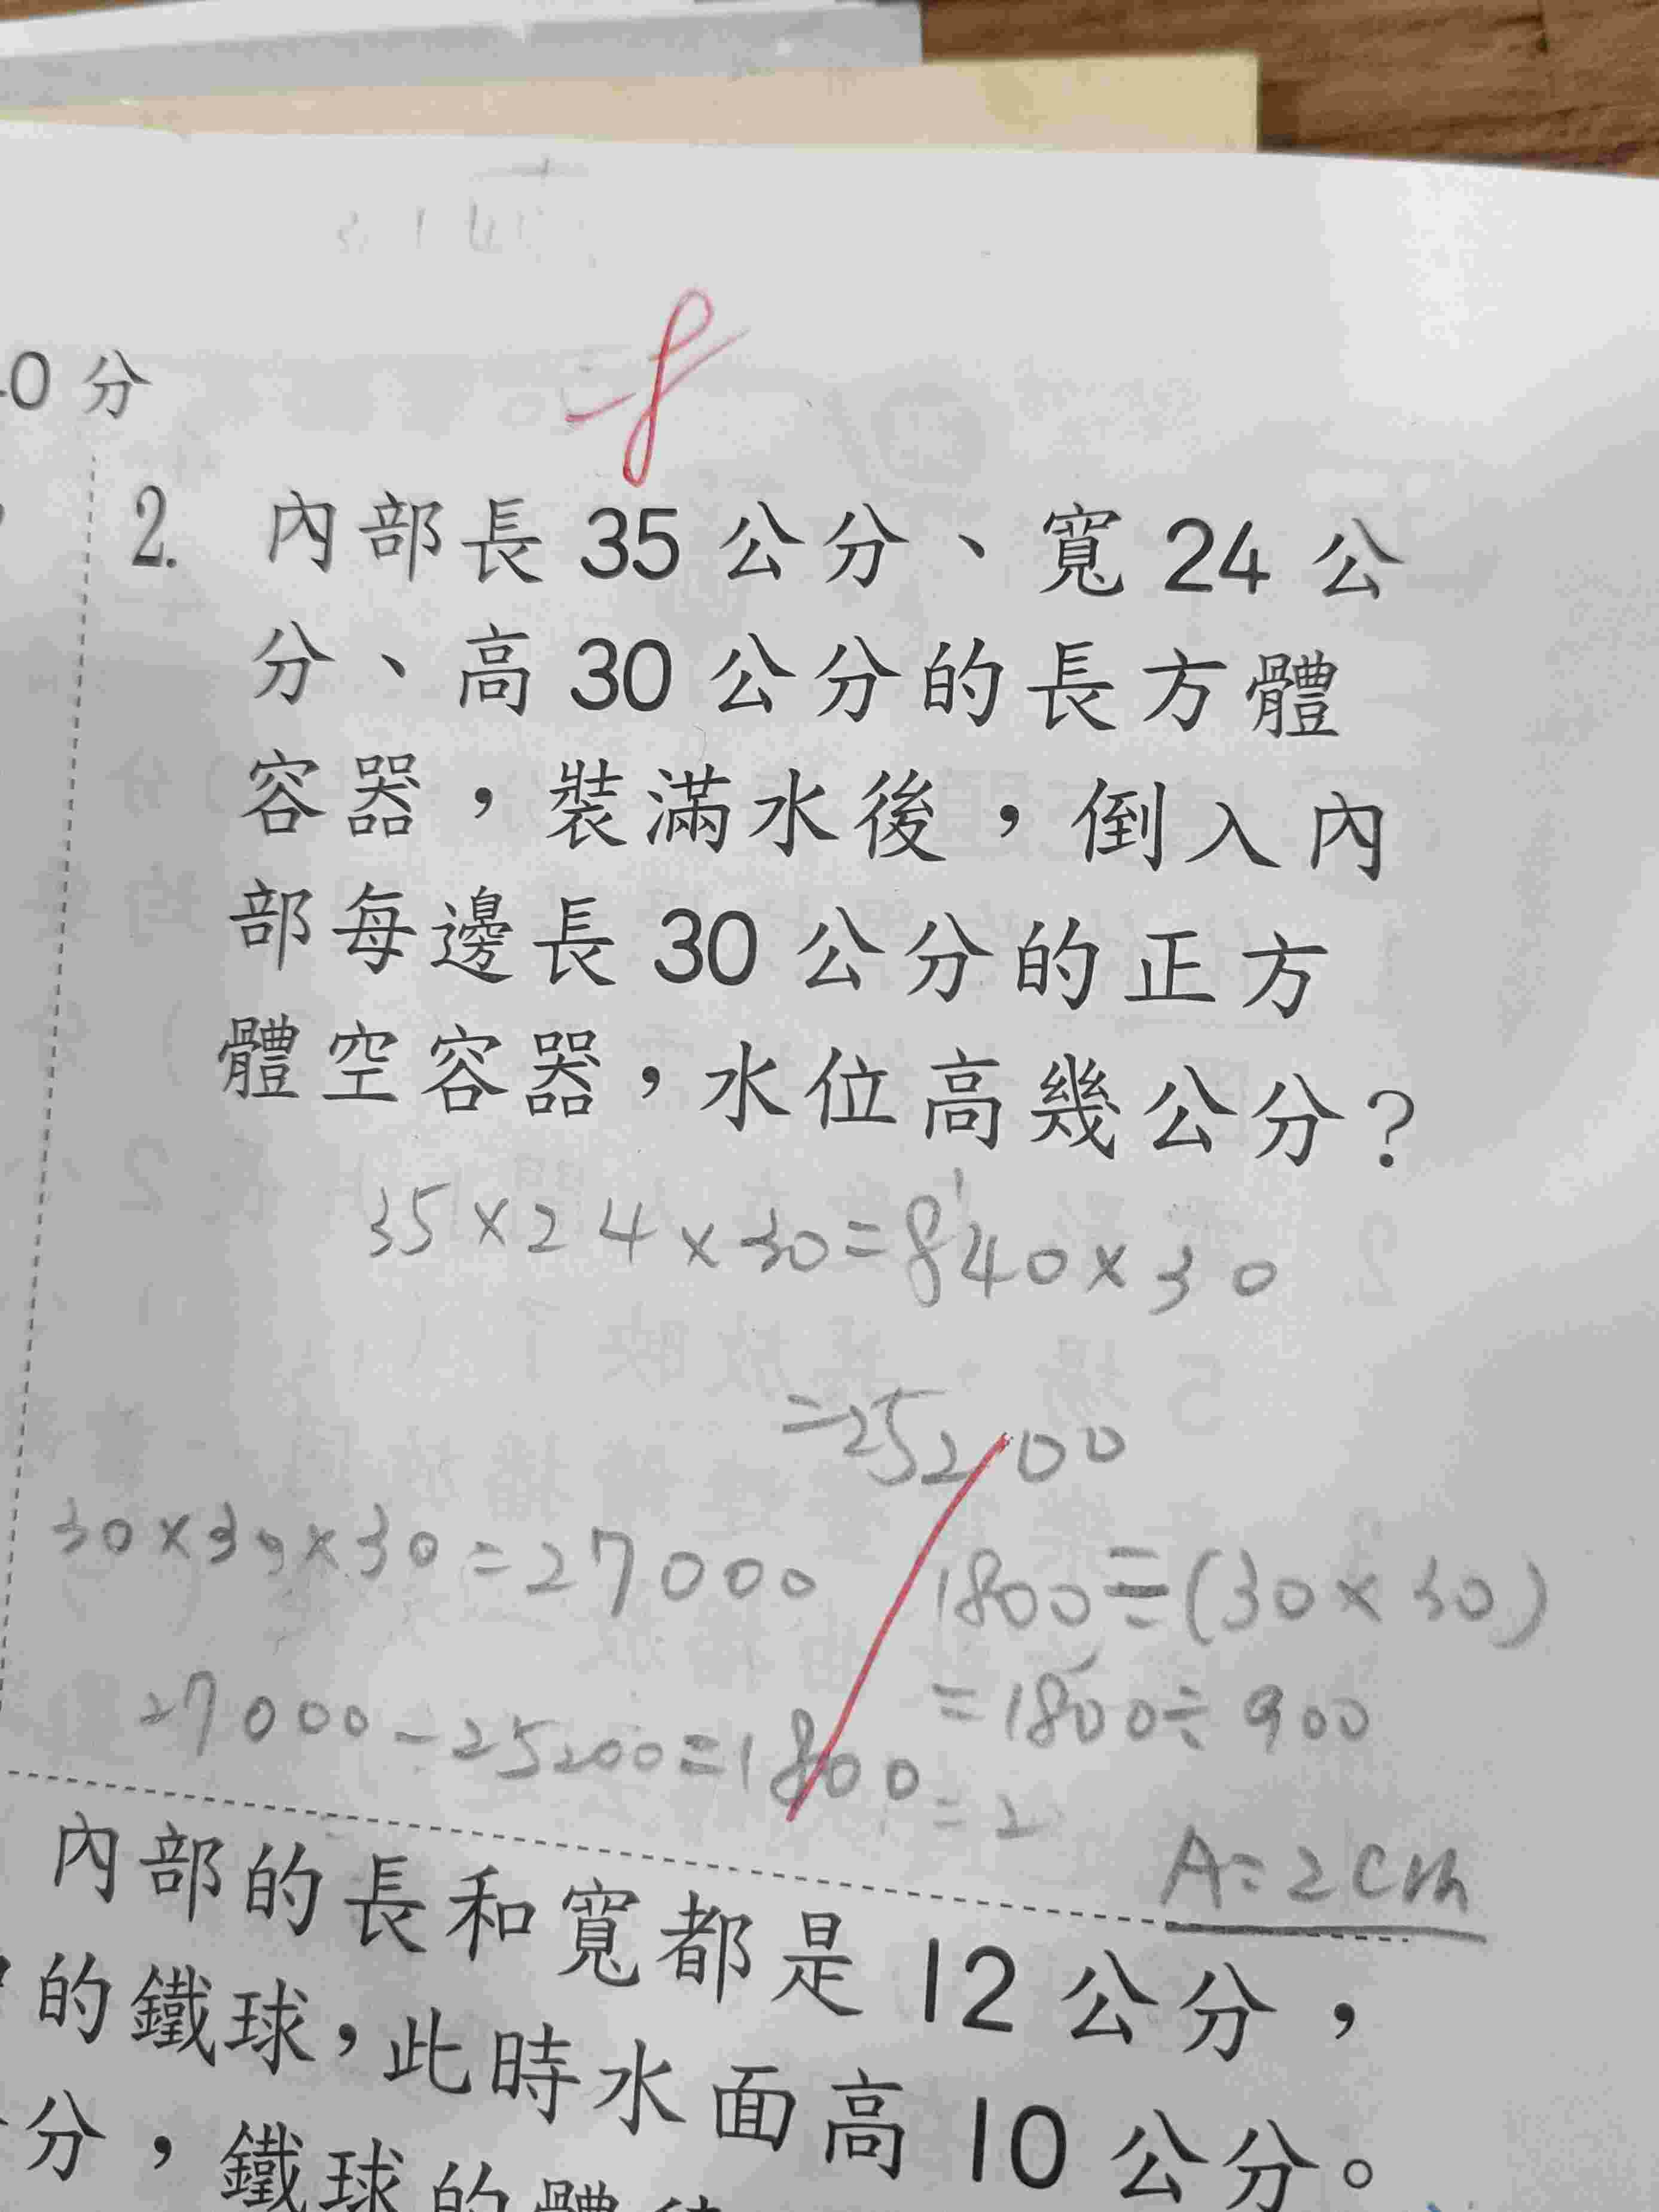 0 分
-8
2. 內部長 35 公分、寬 24 公
分、高 30 公分的長方體
容器，裝滿水後，倒入內
部每邊長 30 公分的正方
體空容器，水位高幾公分？
35×24×30=840×30
=25200
30×30×30=27000
1800÷(30×30)
=1800÷900
27000-25200=1800
=2
A=2cm
內部的長和寬都是 12 公分，
的鐵球，此時水面高 10 公分。
分，鐵球的體